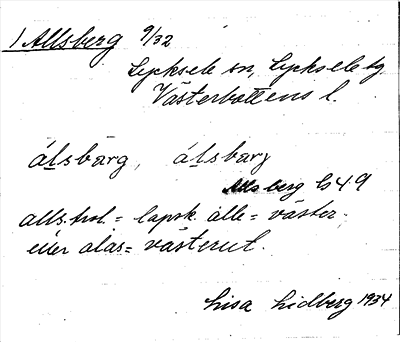 1 Allsberg 9/32
Lycksele sn, Lycksele tg
Västerbottens l.
álsbärg, álsbarj
Allsberg 649
alls.hol. = lapsk. alle = väster.
eller alas = västerut.
Lisa Lidberg 1934